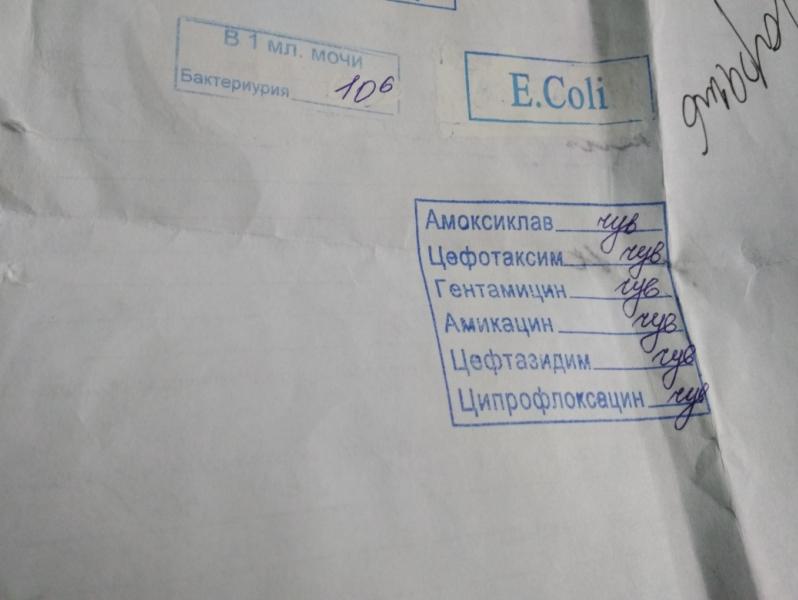 В 1 мл. мочи
Бактериурия 10⁶
E.Coli
Амоксиклав чув
Цефотаксим чув
Гентамицин чув
Амикацин чув
Цефтазидим чув
Ципрофлоксацин чув